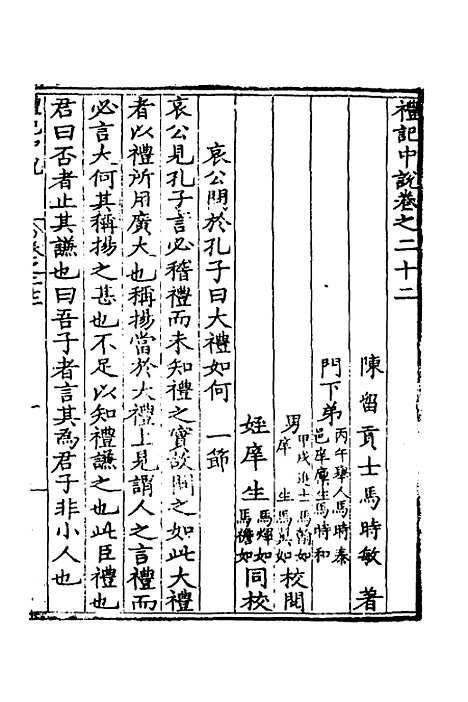 禮記中説卷之二十二
陳留貢士馬時敏著
門下弟
丙午舉人馬時泰
邑庠廩生馬時和
男
甲戌進士馬
庠生馬
如
校閲
姪庠生
馬煇如
馬譫如
同校
哀公問於孔子曰大禮如何 一節
哀公見孔子言必稽禮而未知禮之實故問之如此大禮
者以禮所用廣大也稱揚當於大禮上見謂人之言禮而
必言大何其稱揚之甚也不足以知禮謙之也此臣禮也
君曰否者止其謙也曰吾子者言其為君子非小人也